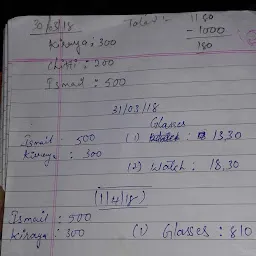 30/03/18 Total: 1180
Kiraya: 300 - 1000
180
Chitti: 200
Ismail: 500
31/03/18
Glasses
Ismail: 500 (1) 13,30
Kiraya: 300
(2) Watch: 18,30
(1/4/18)
Ismail: 500
Kiraya: 300 (1) Glasses: 810